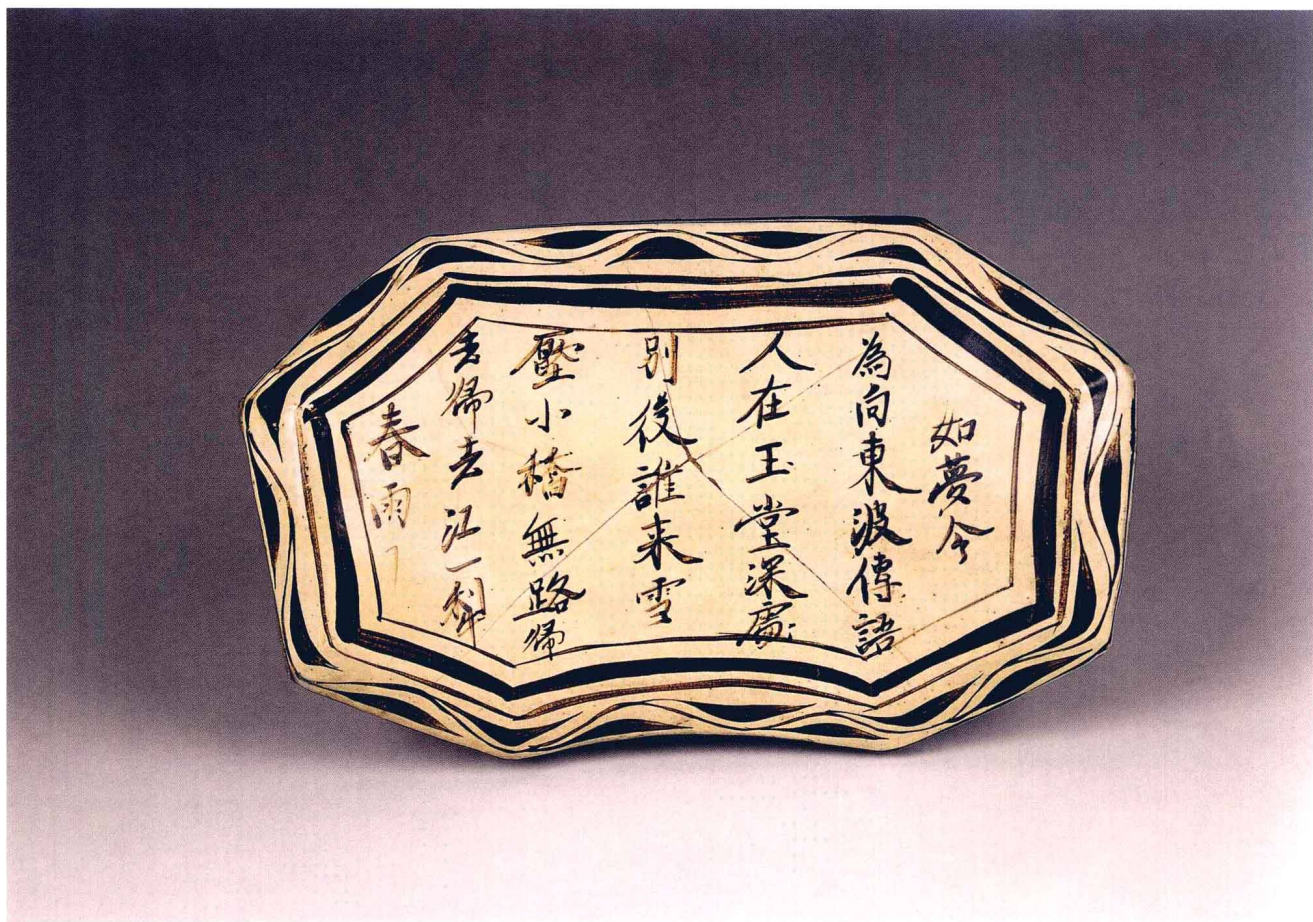 如夢令
為向東波傳語
人在玉堂深處
別後誰来雪
壓小橋無路歸
去歸去江一犁
春雨